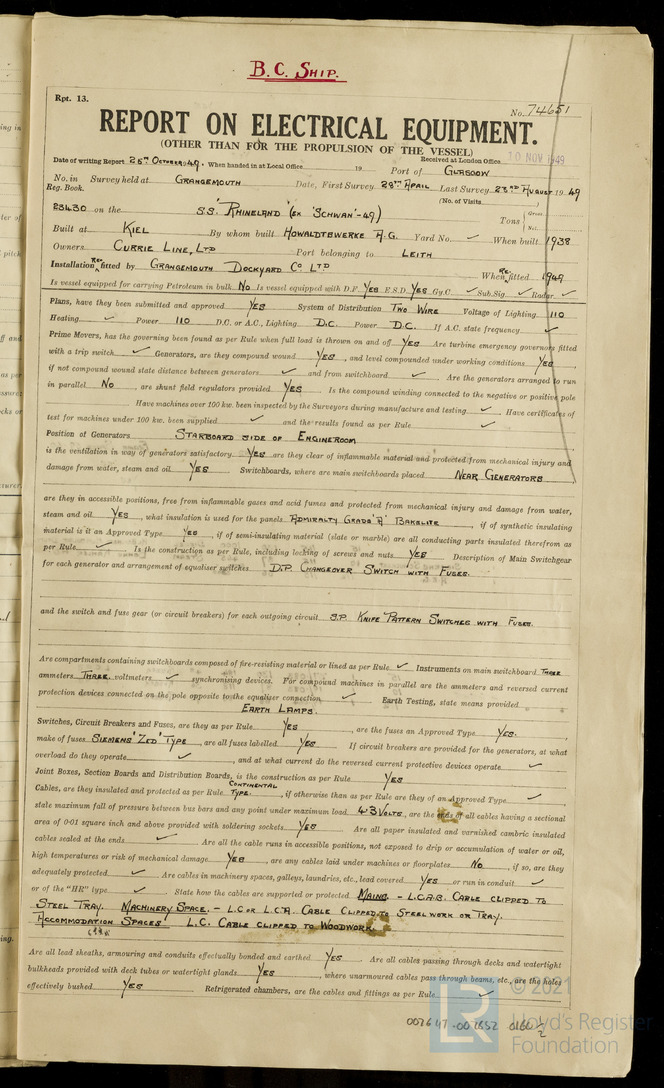 B.C. SHIP.
Rpt. 13.
No. 74651
REPORT ON ELECTRICAL EQUIPMENT.
(OTHER THAN FOR THE PROPULSION OF THE VESSEL)
Date of writing Report 25TH OCTOBER 1949. When handed in at Local Office 19 Port of GLASGOW Received at London Office 10 NOV 1949
No. in Reg. Book. Survey held at GRANGEMOUTH Date, First Survey 29TH APRIL Last Survey 23RD AUGUST 1949
(No. of Visits )
23430 on the S.S. 'RHINELAND' (EX 'SCHWAN'-49) Tons Gross Net
Built at KIEL By whom built HOWALDTSWERKE A.G. Yard No. ✓ When built 1938
Owners CURRIE LINE, LTD Port belonging to LEITH
Installation RE fitted by GRANGEMOUTH DOCKYARD CO LTD When RE fitted 1949
Is vessel equipped for carrying Petroleum in bulk NO Is vessel equipped with D.F. YES E.S.D. YES Gy.C. ✓ Sub.Sig. ✓ Radar ✓
Plans, have they been submitted and approved YES System of Distribution TWO WIRE Voltage of Lighting 110
Heating ✓ Power 110 D.C. or A.C., Lighting D.C. Power D.C. If A.C. state frequency ✓
Prime Movers, has the governing been found as per Rule when full load is thrown on and off YES Are turbine emergency governors fitted
with a trip switch ✓ Generators, are they compound wound YES, and level compounded under working conditions YES,
if not compound wound state distance between generators ✓ and from switchboard ✓. Are the generators arranged to run
in parallel NO, are shunt field regulators provided YES Is the compound winding connected to the negative or positive pole
Have machines over 100 kw. been inspected by the Surveyors during manufacture and testing ✓. Have certificates of
test for machines under 100 kw. been supplied ✓ and the results found as per Rule ✓
Position of Generators STARBOARD SIDE OF ENGINEROOM
is the ventilation in way of generators satisfactory YES are they clear of inflammable material and protected from mechanical injury and
damage from water, steam and oil YES Switchboards, where are main switchboards placed NEAR GENERATORS
are they in accessible positions, free from inflammable gases and acid fumes and protected from mechanical injury and damage from water,
steam and oil YES, what insulation is used for the panels 'ADMIRALTY GRADE A' BAKELITE, if of synthetic insulating
material is it an Approved Type YES, if of semi-insulating material (slate or marble) are all conducting parts insulated therefrom as
per Rule ✓ Is the construction as per Rule, including locking of screws and nuts YES Description of Main Switchgear
for each generator and arrangement of equaliser switches D.P. CHANGEOVER SWITCH WITH FUSES.
and the switch and fuse gear (or circuit breakers) for each outgoing circuit S.P. KNIFE PATTERN SWITCHES WITH FUSES.
Are compartments containing switchboards composed of fire-resisting material or lined as per Rule ✓ Instruments on main switchboard THREE
ammeters THREE voltmeters ✓ synchronising devices. For compound machines in parallel are the ammeters and reversed current
protection devices connected on the pole opposite to the equaliser connection ✓ Earth Testing, state means provided
EARTH LAMPS.
Switches, Circuit Breakers and Fuses, are they as per Rule YES, are the fuses an Approved Type YES,
make of fuses SIEMENS 'ZED' TYPE, are all fuses labelled YES If circuit breakers are provided for the generators, at what
overload do they operate ✓, and at what current do the reversed current protective devices operate ✓
Joint Boxes, Section Boards and Distribution Boards, is the construction as per Rule YES
Cables, are they insulated and protected as per Rule CONTINENTAL TYPE, if otherwise than as per Rule are they of an Approved Type ✓,
state maximum fall of pressure between bus bars and any point under maximum load 4·3 VOLTS, are the ends of all cables having a sectional
area of 0·01 square inch and above provided with soldering sockets YES Are all paper insulated and varnished cambric insulated
cables sealed at the ends ✓ Are all the cable runs in accessible positions, not exposed to drip or accumulation of water or oil,
high temperatures or risk of mechanical damage YES, are any cables laid under machines or floorplates NO, if so, are they
adequately protected ✓ Are cables in machinery spaces, galleys, laundries, etc., lead covered YES or run in conduit ✓
or of the "HR" type ✓ State how the cables are supported or protected MAINS - L.C.A.B. CABLE CLIPPED TO
STEEL TRAY. MACHINERY SPACE. - L.C. OR L.C.A. CABLE CLIPPED TO STEELWORK OR TRAY.
ACCOMMODATION SPACES L.C. CABLE CLIPPED TO WOODWORK.
Are all lead sheaths, armouring and conduits effectually bonded and earthed YES Are all cables passing through decks and watertight
bulkheads provided with deck tubes or watertight glands YES, where unarmoured cables pass through beams, etc., are the holes
effectively bushed YES Refrigerated chambers, are the cables and fittings as per Rule ✓
002647-002652-0166 1/2
LR
© 2021
Lloyd's Register
Foundation